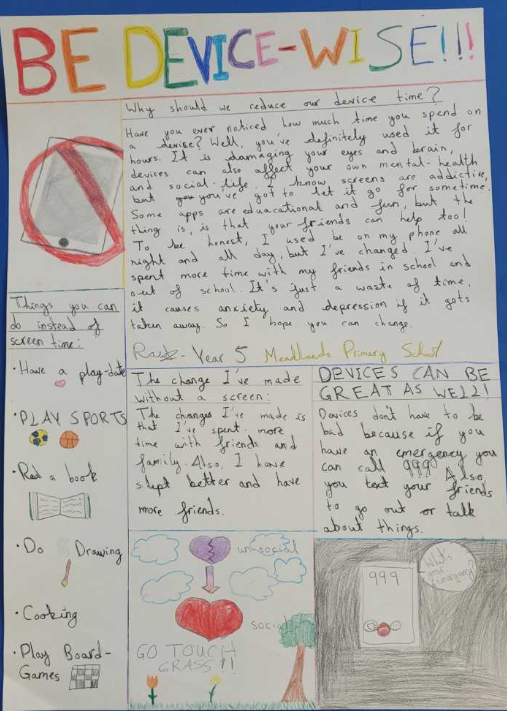 BE DEVICE-WISE!!!
Why should we reduce our device time?
Have you ever noticed how much time you spend on
a devise? Well, you've definitely used it for
hours. It is damaging your eyes and brain,
devices can also affect your own mental-health
and social-life. I know screens are addictive,
but you've got to let it go for sometime.
Some apps are educational and fun, but the
thing is, is that your friends can help too!
To be honest, I used be on my phone all
night and all day, but I've changed. I've
spent more time with my friends in school and
out of school. It's just a waste of time,
it causes anxiety and depression if it gots
taken away. So I hope you can change.
- Year 5 Meadlands Primary School
Things you can
do instead of
screen time:
• Have a play-date
• PLAY SPORTS
• Read a book
• Do Drawing
• Cooking
• Play Board-
Games
The change I've made
without a screen:
The changes I've made is
that I've spent more
time with friends and
family. Also, I have
slept better and have
more friends.
DEVICES CAN BE
GREAT AS WELL!
Devices don't have to be
bad because if you
have an emergency you
can call 999. Also
you text your friends
to go out or talk
about things.
un-social
social
GO TOUCH
GRASS!!
999
What's
your
emergency?